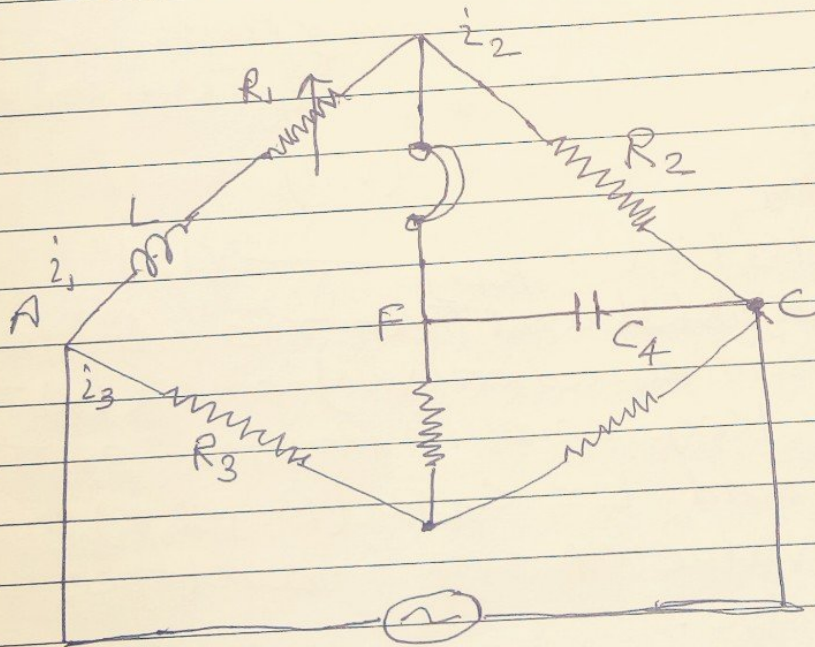 i2
R1
R2
L
i1
A
F
C
C4
i3
R3